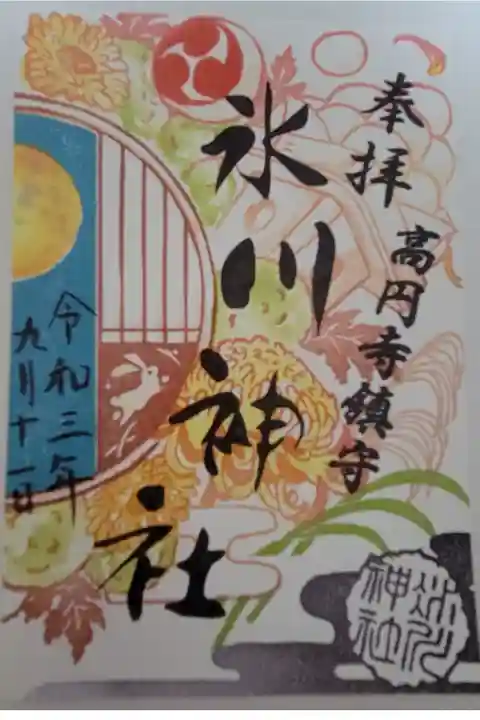 奉拝
高円寺鎮守
氷川神社
令和三年
九月十一日
氷川
神社